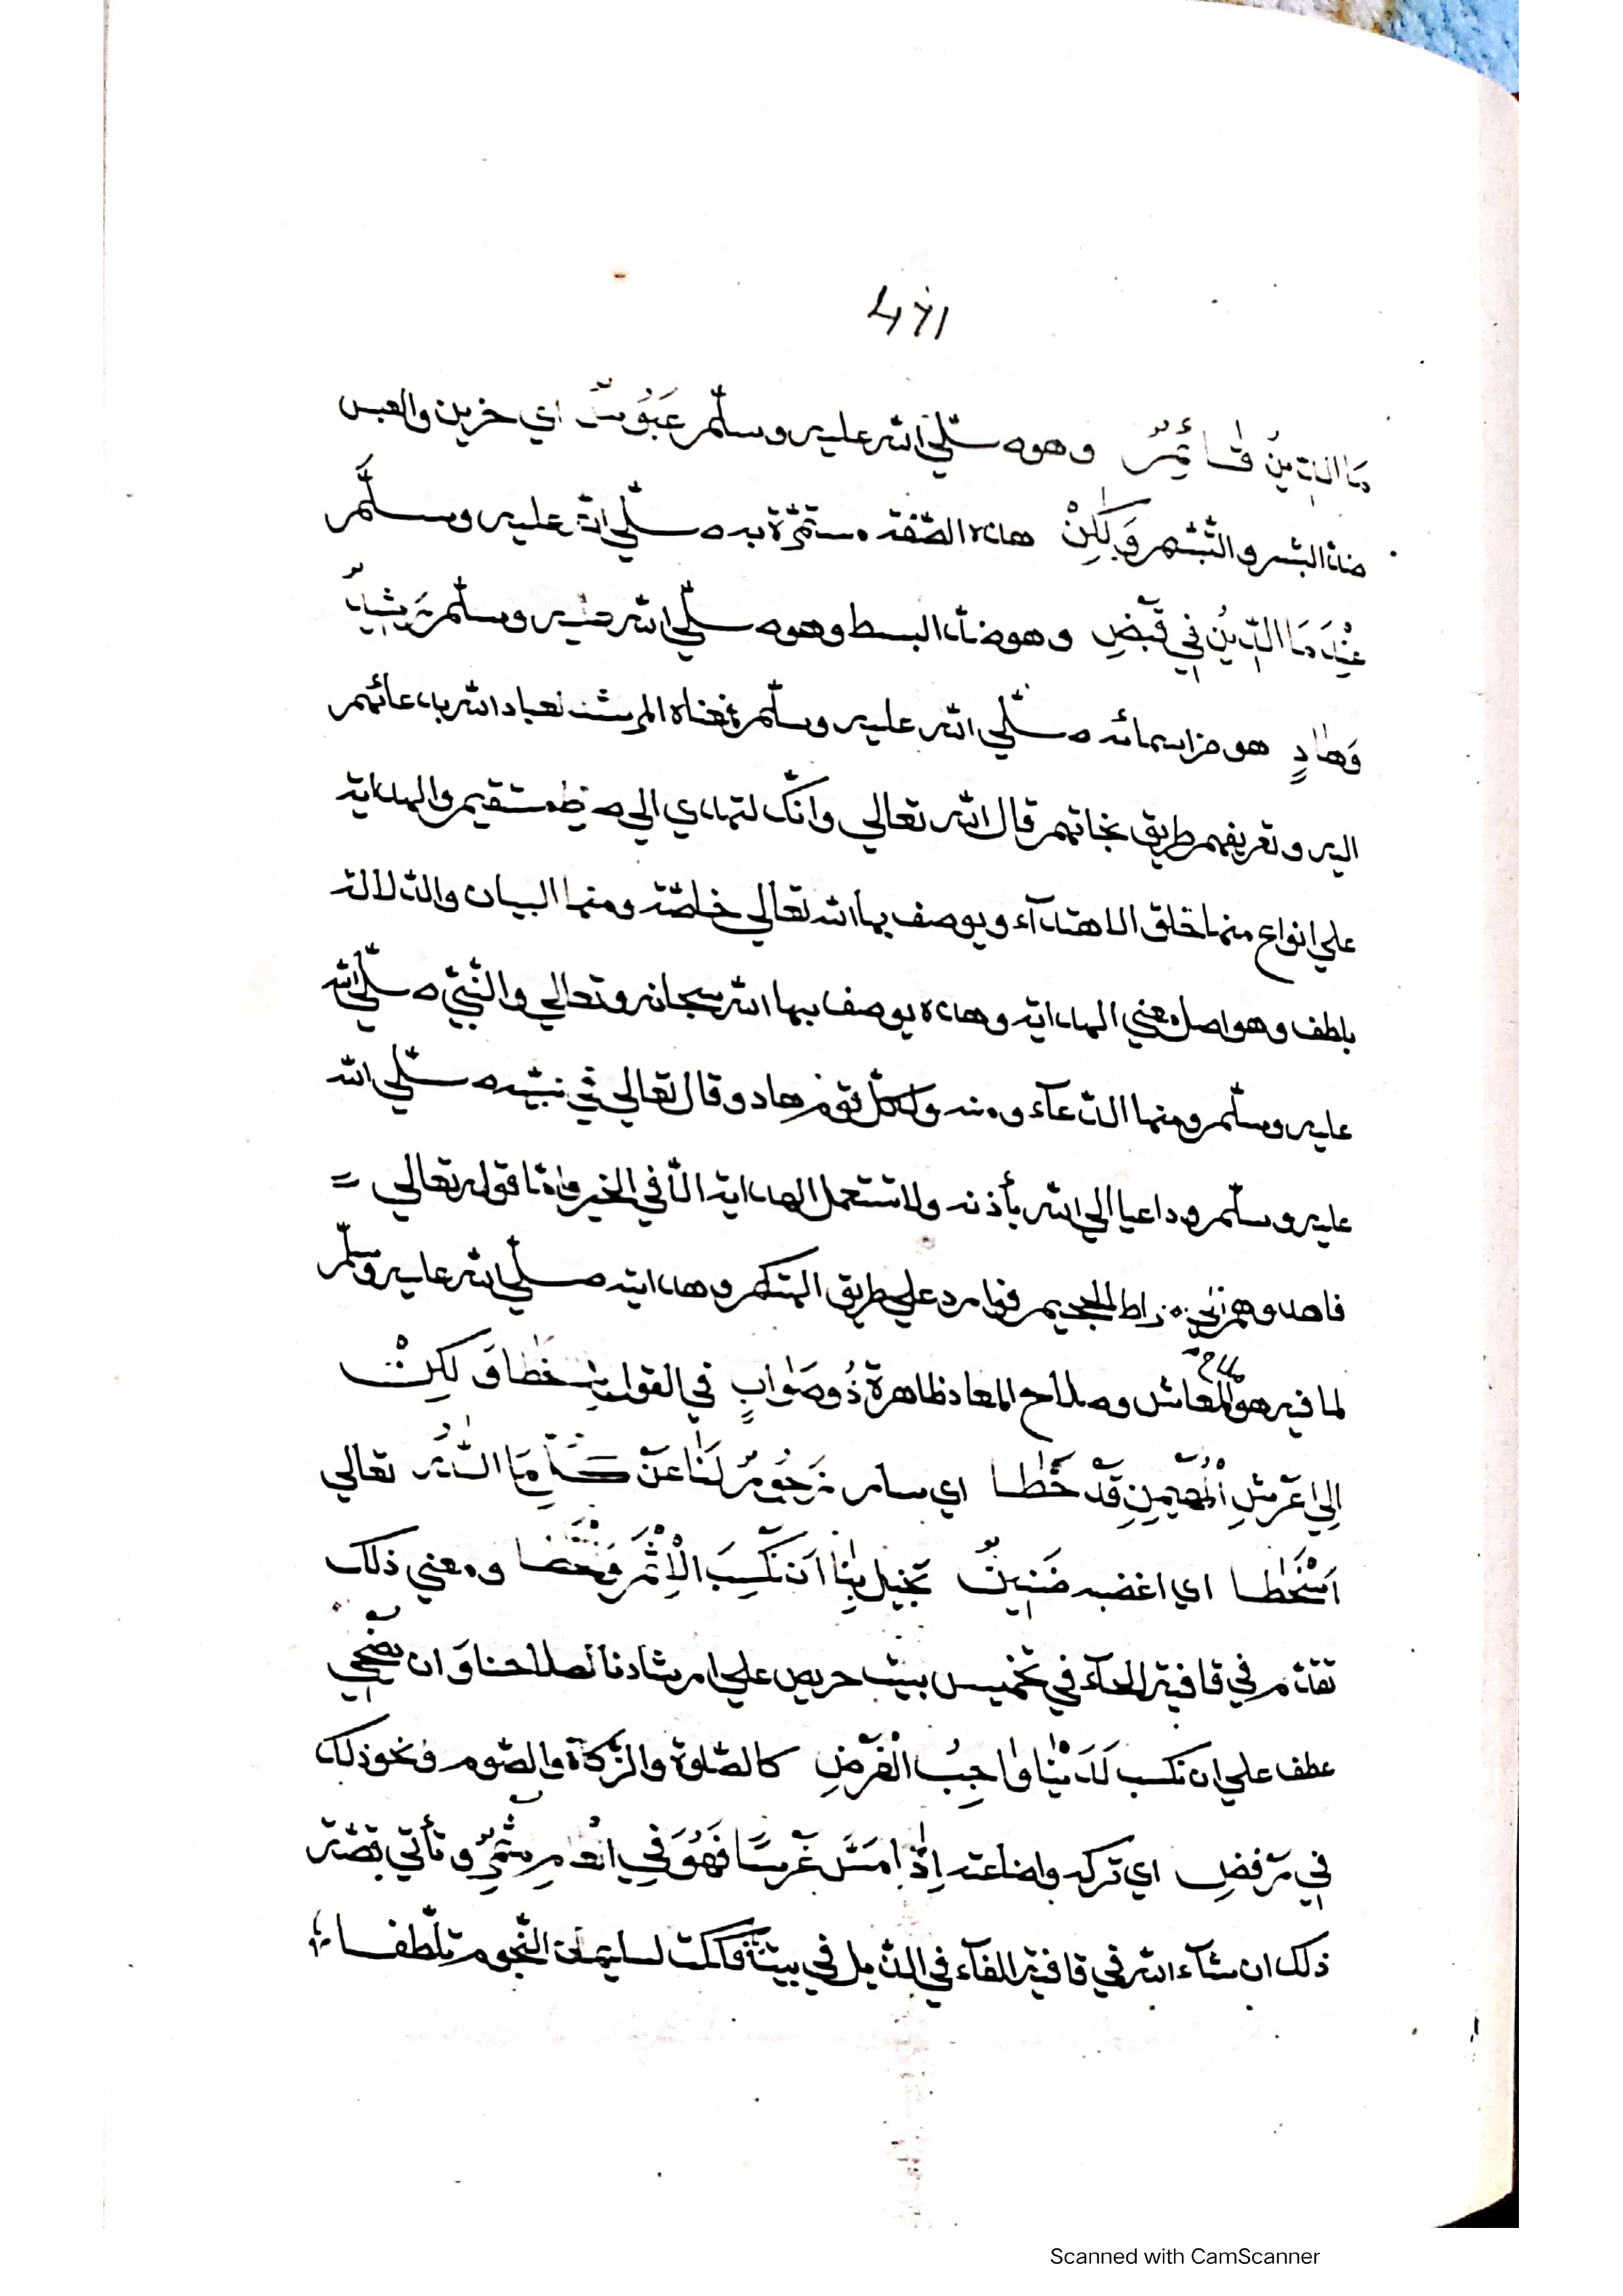 471
ما الدِّينُ قَائِمٌ وهو صلّي الله عليه وسلّم عَبُوسٌ اي حزين والعبس
ضدّ البشر والتّبسّم وَلٰكِنْ هذه الصّفة مستمرّة به صلّي الله عليه وسلّم
عِنْدَمَا الدِّينُ فِي قَبْضٍ وهو ضدّ البسط وهو صلّي الله عليه وسلّم رَشِيدٌ
وَهَادٍ هو من اسمائه صلّي الله عليه وسلّم معناه المرشد لعباد الله بدعائهم
اليه وتعريفهم طريق نجاتهم قال الله تعالي وانّك لتهدي الي صراط مستقيم والهداية
علي انواع منها خلق الاهتدآء ويوصف بها الله تعالي خاصّة ومنها البيان والدّلالة
بلطف وهو اصل معني الهداية وهذه يوصف بها الله سبحانه وتعالي والنّبيّ صلّي الله
عليه وسلّم ومنها الدّعآء ومنه ولكلّ قوم هاد وقال تعالي في نبيّه صلّي الله
عليه وسلّم وداعيا الي الله بأذنه ولا تستعمل الهداية الّا في الخير وامّا قوله تعالي =
فاهدوهم الي صراط الجحيم فوارد علي طريق التهكم وهدايته صلّي الله عليه وسلّم
لما فيه صلاح المعاش وصلاح المعاد ظاهرة ذُو صَوَابٍ في القول خَطَا وَلٰكِنْ
اِلَي عَرْشِ الْمُهَيْمِنِ قَدْ خَطَا اي سار زَجُورٌ لَنَا عَنْ كُلِّ مَا اللهَ تعالي
اَسْخَطَا اي اغضبه ضَنِينٌ بخيل بِنَا اَنْ نَكْسِبَ الْاِثْمَ وَالْخَطَا ومعني ذلك
تقدّم في قافية الحآء في تخميس بيت حريص علي ارشادنا لصلاحنا وَان يضحي
عطف علي ان نكسب لَدَيْنَا وَاجِبُ الْفَرْضِ كالصّلوة والزّكاة والصّوم ونحو ذلك
فِي رَفْضِ اي تركه واضاعته اِذَا مَسَّ غَرْسًا فَهُوَ فِي الْعَامِ مُثْمِرٌ وتأتي قصّة
ذلك ان شآء الله في قافية الفآء في الذّيل في بيت وكمت لسليمان النّجوم تلطّفا
Scanned with CamScanner